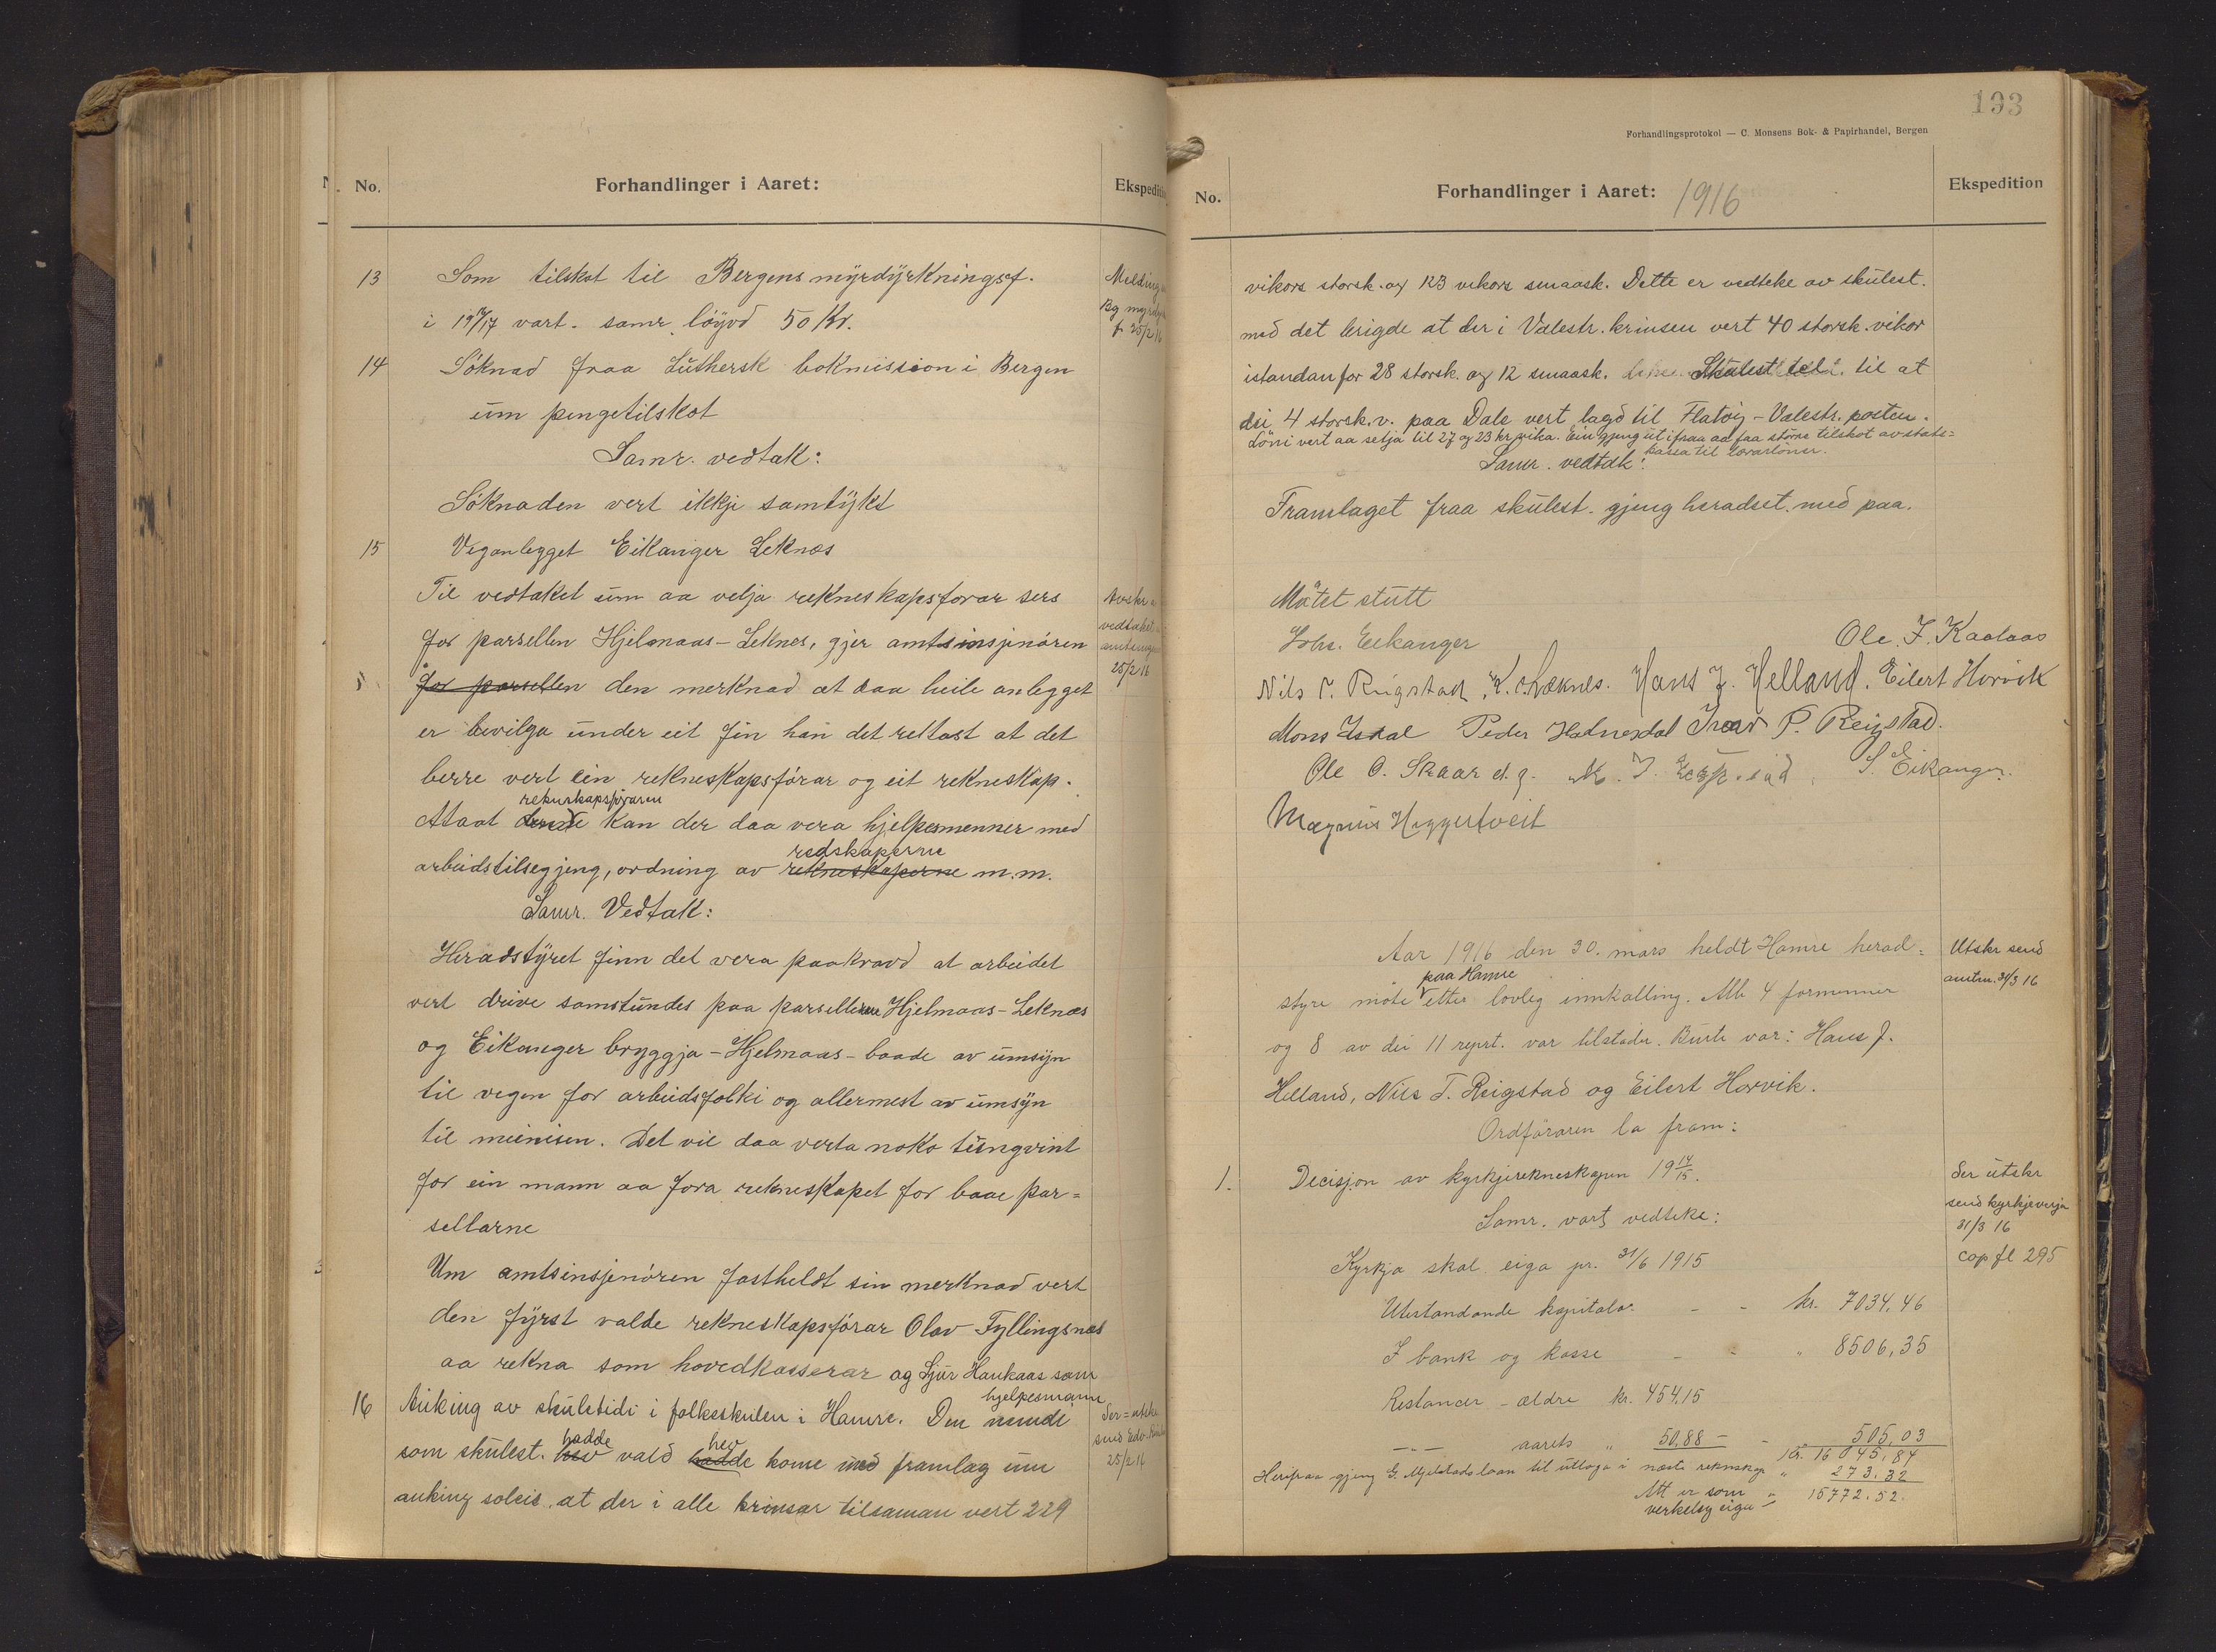 No.
Forhandlinger i Aaret:
Ekspedition
13
Som tilskot til Bergens myrdyrkningsf.
i 1916/17 vart samr. löyvd 50 Kr.
Melding
Bg myrdyrk
f 25/2 16
14
Söknad fraa Luthersk bokmission i Bergen
um pengetilskot
Samr. vedtak:
Söknaden vert ikkje samtykt
15
Veganlegget Eikanger Leknes
Til vedtaket um aa velja rekneskapsförar sers
for parsellen Hjelmaas-Leknes, gjer amtsinsjenören
for parsellen den merknad at daa heile anlegget
er bevilga under eit finn han det rettast at det
berre vert ein rekneskapsförar og eit rekneskap.
rekneskapsföraren
Ataat denne kan der daa vera hjelpesmenner med
redskaperne
arbeidstilsegjeng, ordning av rekneskaperne m.m.
Avskr av
vedtaket
amtsingen
25/2 16
Samr. Vedtak:
Heradstyret finn det vera paakravd at arbeidet
vert drive samstundes paa parsellerne Hjelmaas-Leknes
og Eikanger bryggja - Hjelmaas - baade av umsyn
til vegen for arbeidsfolki og allermest av umsyn
til meinisen. Det vil daa verta noko tungvint
for ein mann aa föra rekneskapet for baae par=
sellarne
Um amtsinsjenören fastheldt sin merknad vert
den fyrst valde rekneskapsförar Olav Fyllingsnes
aa rekna som hovedkasserar og Sjur Haukaas som
hjelpesmann
16
Auking av skuletidi i folkeskulen i Hamre. Den nemdi
hadde hev
som skulest. hev vald hadde kome med framlag um
auking soleis, at der i alle krinsar tilsaman vert 229
Ser=utskr
send Edv.
25/2 16
193
Forhandlingsprotokol — C. Monsens Bok- & Papirhandel, Bergen
No.
Forhandlinger i Aaret: 1916
Ekspedition
vikors storsk. og 123 vikors smaask. Dette er vedteke av skulest.
med det brigde at der i Valestr. krinsen vert 40 storsk. vikor
istandanfor 28 storsk. og 12 smaask. Skulest til at
dei 4 storsk.v. paa Dale vert lagd til Flatöy-Valestr. posten.
Löni vert aa setja til 27 og 23 kr vika. Ein gjeng ut ifraa aa faa större tilskot av stats=
kassa til lærarlöner.
Samr. vedtak:
Framlaget fraa skulest. gjeng heradsst. med paa.
Mötet slutt
Johs. Eikanger
Ole. J. Kaalaas
Nils T. Reigstad K. Leknes. Hans J. Helland. Eilert Horvik
Mons Isdal Peder Hatnesdal Ivar P. Reigstad.
Ole O. Skaar d.g. S. Eikanger.
Magnus Heggertveit
Aar 1916 den 30. mars heldt Hamre herad=
paa Hamre
styre möte etter lovleg innkalling. Alle 4 formenner
og 8 av dei 11 reprt. var tilstades. Burte var: Hans J.
Helland, Nils T. Reigstad og Eilert Horvik.
Utskr send
amtm. 31/3 16
Ordföraren la fram:
1.
Decisjon av kyrkjerekneskapen 1914/15.
Samr. vart vedteke:
Ser utskr
send kyrkjeverja
31/3 16
cop fl 295
Kyrkja skal eiga pr. 31/6 1915
Utestandande kapitalar - - kr. 7034,46
I bank og kasse - - " 8506,35
Restancer - ældre kr. 454,15
—"— aarets " 50,88 - - 505,03
kr. 16 045,84
Herifraa gjeng G. Mjelstads laan til utlaga i næste reknskap " 273,32
Att er som
verkeleg eiga " 15772.52.